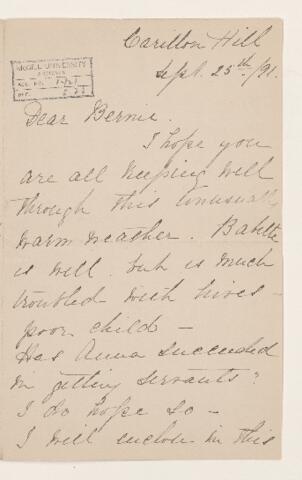 Carillon Hill
Sept. 25th /91.
McGILL UNIVERSITY
ARCHIVES
ACC. NO.
REF.
Dear Bernie.
I hope you
are all keeping well
through this unusually
warm weather. Babette
is well. but is much
troubled with hives -
poor child -
Has Anna succeeded
in getting servants?
I do hope so -
I will enclose in this